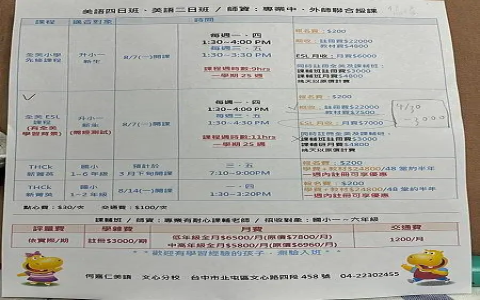 美語四日班、英語二日班 / 師資：專業中、外師聯合授課
課程 適合對象 時間
全美小學先修課程 升小一新生 8/7(一)開課
每週一、四
1:30~4:00 PM
每週三、五
1:30~3:30 PM
課程週時數:9hrs
一學期 25 週
報名費：$200
註冊費$22000
教材費$4800
ESL月費：月費$6000
註冊費$3000
月費$4800
全美 ESL 課程
(有全美學習背景)
升小一新生
(需經測試)
8/7(一)開課
每週一、四
1:30~4:00 PM
每週三、五
1:30~4:30 PM
課程週時數:11hrs
一學期 25 週
報名費：$200
註冊費$22000
教材費$7500
ESL 月費：月費$7000
註冊費$3000
月費$4800
9/30
-3000
THCk 新菁英 國小 1~6 年級 預計於 3 月下旬開課
三、五
7:10~9:00PM
報名費：$200
學費+教材$24800/48 堂約半年
一週內註冊可享優惠
THCk 新菁英 國小 1~2 年級 8/14(一)開課
一、四
1:30~3:20PM
報名費：$200
學費+教材$24800/48 堂約半年
一週內註冊可享優惠
點心費：$30/次
課輔班 / 師資：專業有耐心課輔老師 / 招收對象：國小一~六年級
評量費 學雜費 月費 交通費
依實際/期 註冊$3000/期 低年級全月$6500/月(原價$7800/月) 1200/月
中高年級全月$5800/月(原價$6960/月)
**歡迎有學習經驗的孩子，測驗入班**
何嘉仁美語 文心分校 台中市北屯區文心路四段 458 號 04-22302455